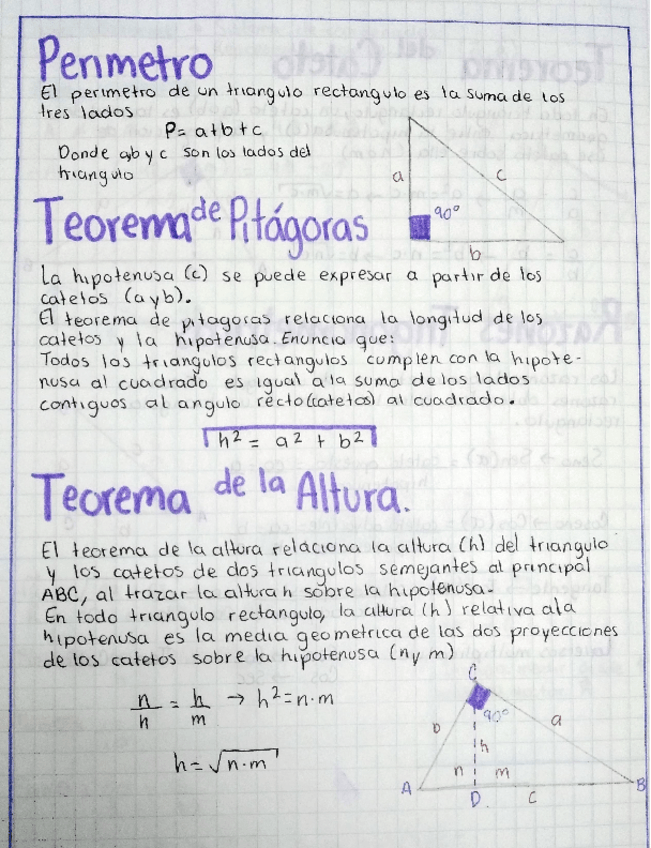 Perimetro
El perimetro de un triangulo rectangulo es la suma de los
tres lados
P= a+b+c
Donde a,b y c son los lados del
triangulo
a
c
90°
b
Teorema de Pitágoras
La hipotenusa (c) se puede expresar a partir de los
catetos (a y b).
El teorema de pitagoras relaciona la longitud de los
catetos y la hipotenusa. Enuncia que:
Todos los triangulos rectangulos cumplen con la hipote-
nusa al cuadrado es igual a la suma de los lados
contiguos al angulo recto (catetos) al cuadrado.
h² = a² + b²
Teorema de la Altura.
El teorema de la altura relaciona la altura (h) del triangulo
y los catetos de dos triangulos semejantes al principal
ABC, al trazar la altura h sobre la hipotenusa.
En todo triangulo rectangulo, la altura (h) relativa a la
hipotenusa es la media geometrica de las dos proyecciones
de los catetos sobre la hipotenusa (n y m)
n/h = h/m → h² = n·m
h = √n·m
C
90°
b
a
h
n
m
A
B
D
c